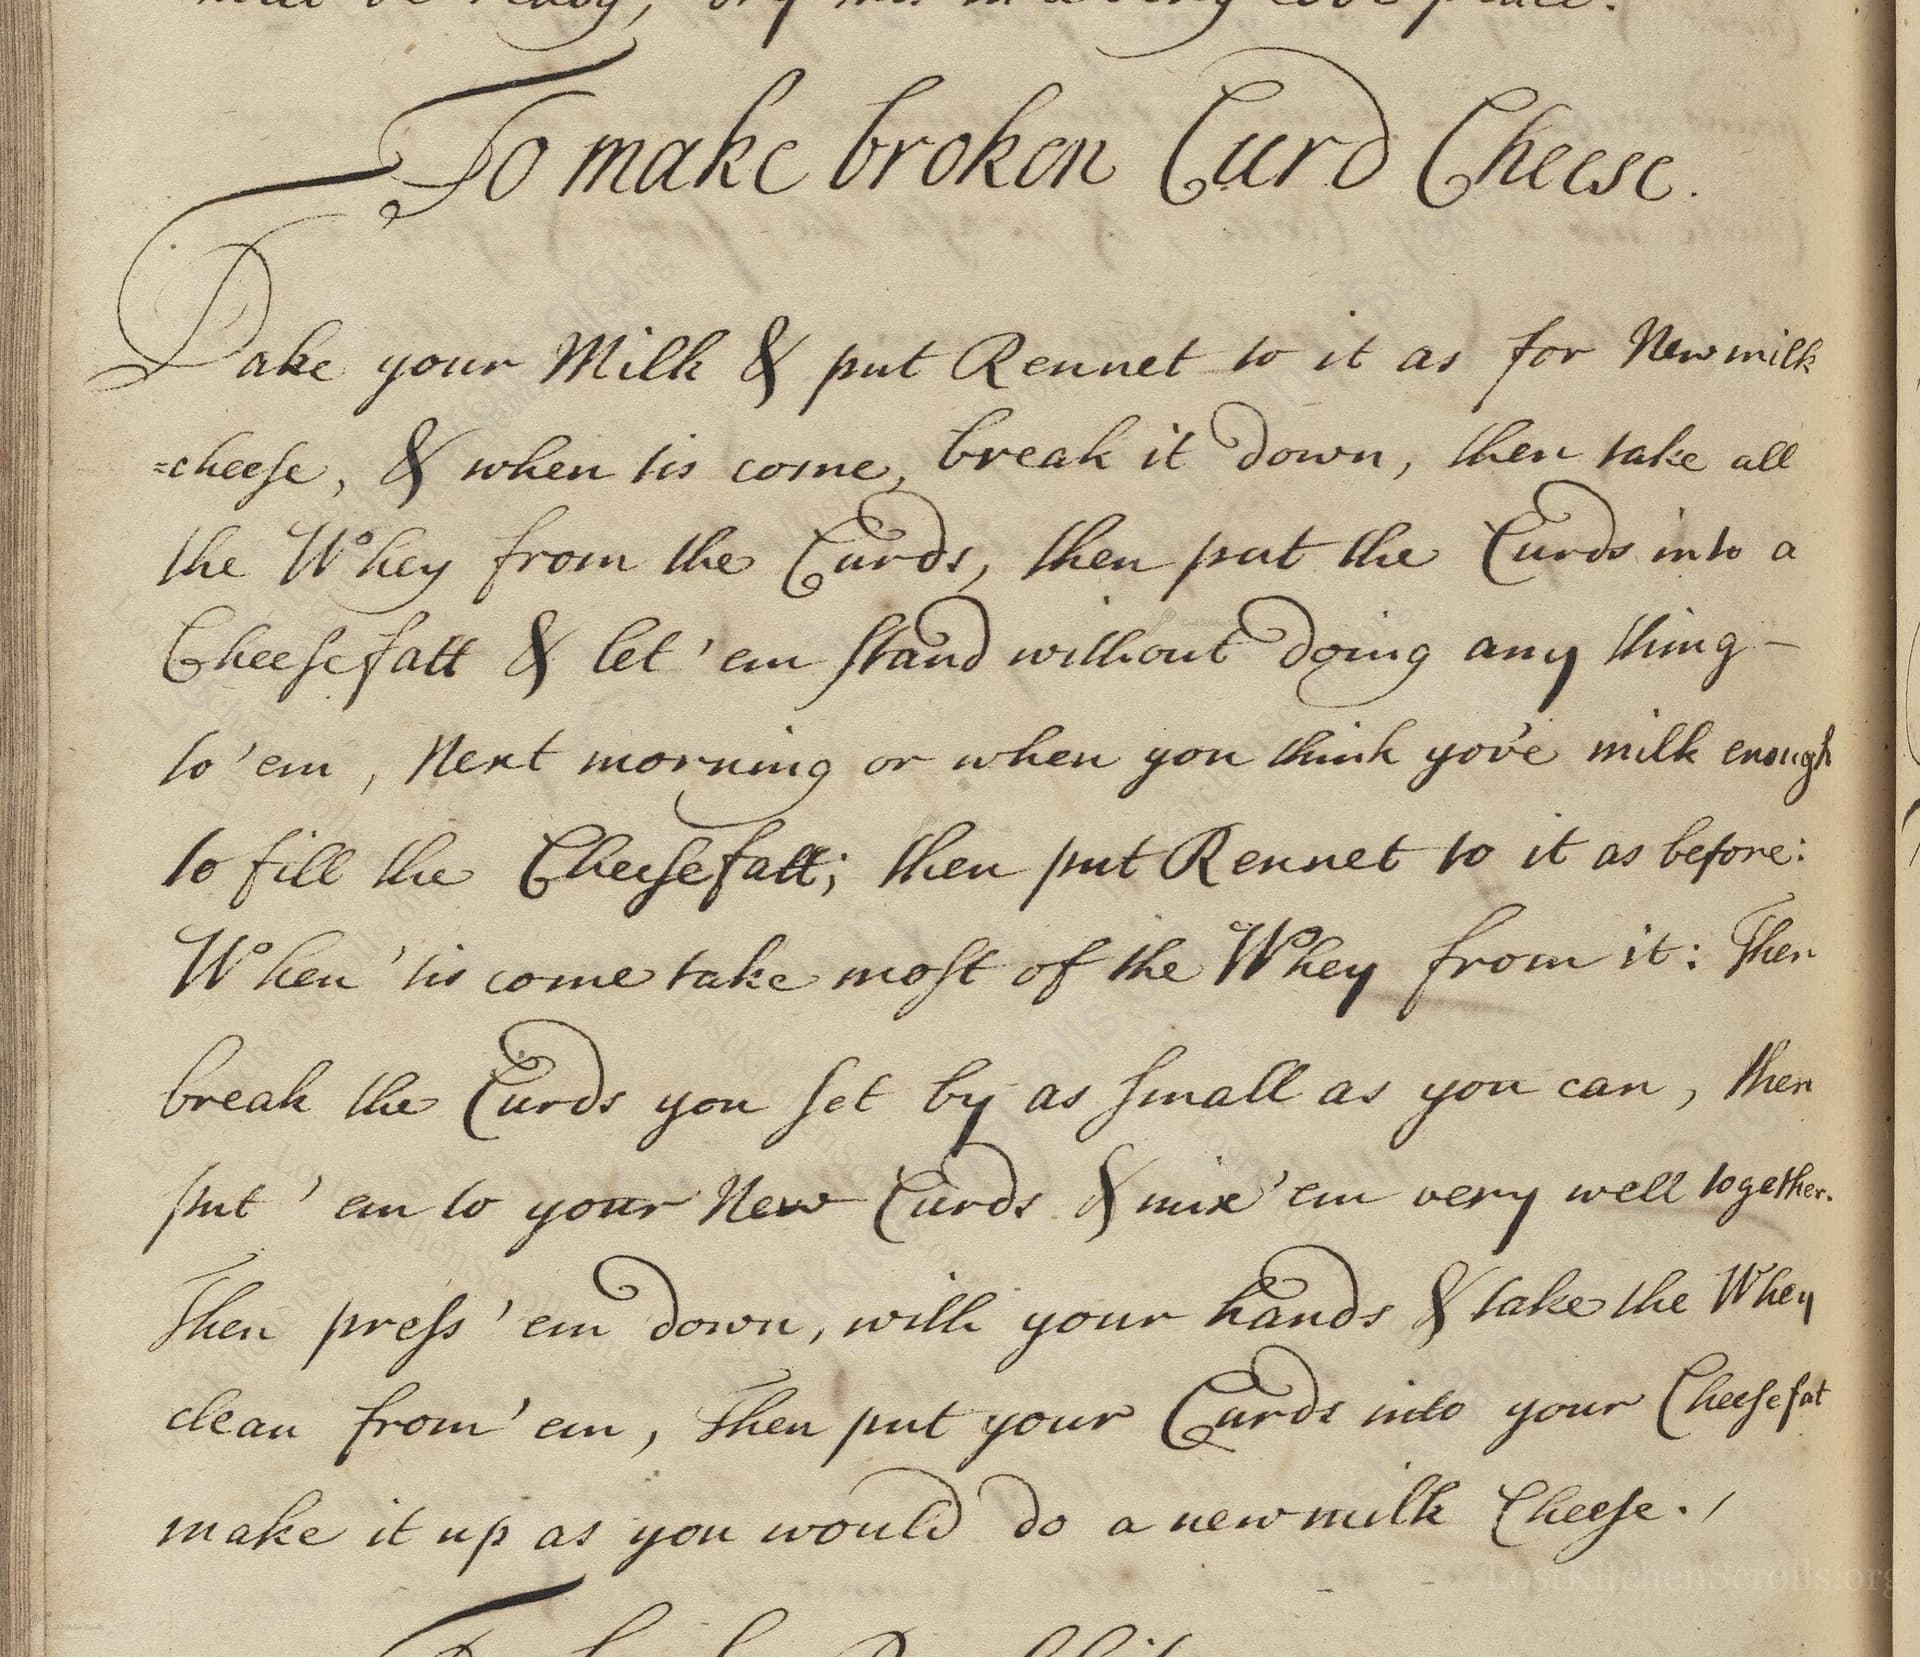 To make broken Curd Cheese.
Take your Milk & put Rennet to it as for New milk
=cheese, & when tis come, break it down, then take all
the Whey from the Curds, then put the Curds into a
Cheesefatt & let 'em stand without doing any thing -
to 'em, Next morning or when you think yov'e milk enough
to fill the Cheesefatt; then put Rennet to it as before:
When 'tis come take most of the Whey from it: Then
break the Curds you set by as small as you can, then
put 'em to your New Curds & mix 'em very well together.
Then press 'em down, with your hands & take the Whey
clean from 'em, Then put your Curds into your Cheesefat
make it up as you would do a new milk Cheese./
LostKitchenScrolls.org